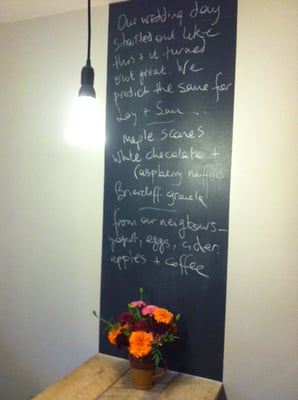 Our wedding day
started out like
this & it turned
out great. We
predict the same for
Lay + Sam ...
maple scones
white chocolate +
raspberry muffins
Briarcliff granola
from our neighbours –
yogurt, eggs, cider,
apples + coffee